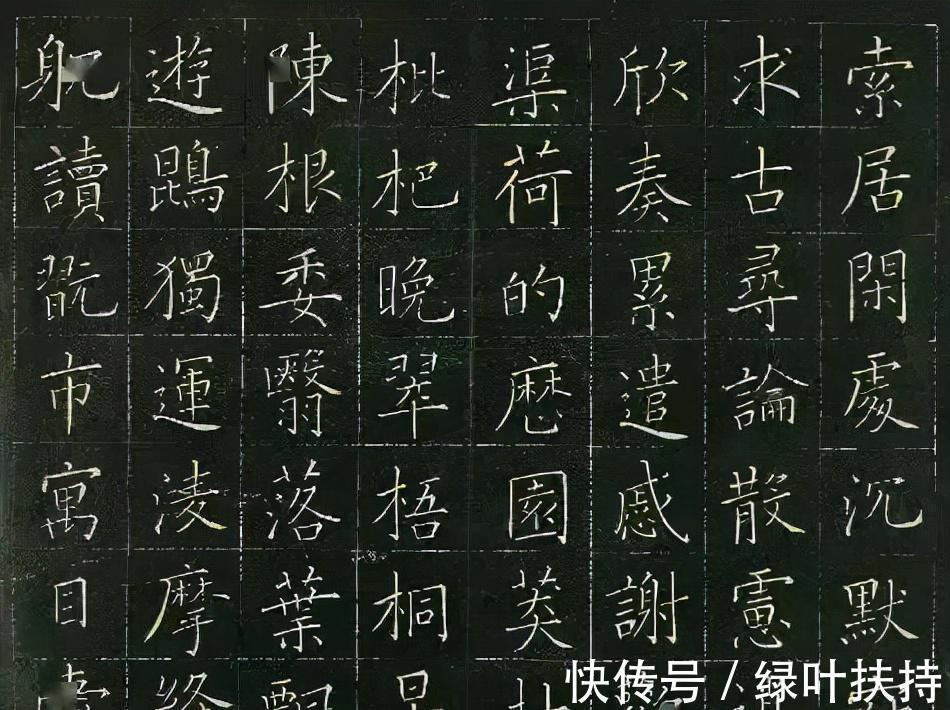 索居閑處沉默
求古尋論散慮
欣奏累遣慼謝
渠荷的歷園莽
枇杷晚翠梧桐
陳根委翳落葉
遊鵾獨運淩摩
躭讀翫市寓目
快传号 / 绿叶扶持